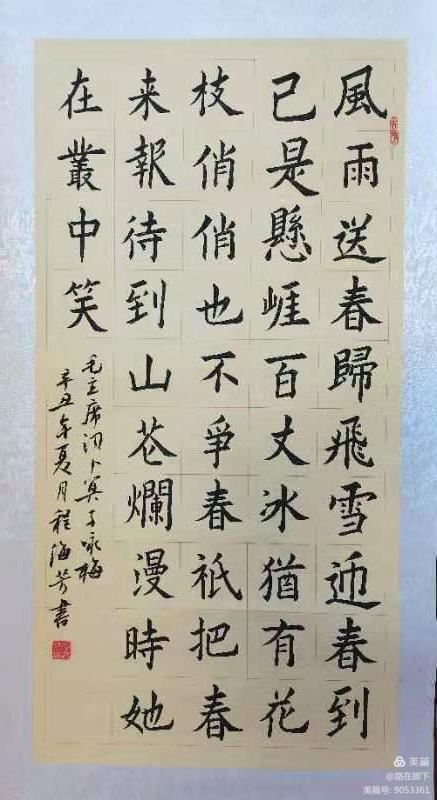 風雨送春歸飛雪迎春到
已是懸崕百丈冰猶有花
枝俏俏也不爭春祇把春
来報待到山花爛漫時她
在叢中笑
毛主席词卜算子咏梅
辛丑年夏月程海芳書
美篇
@路在脚下
美篇号: 9053361